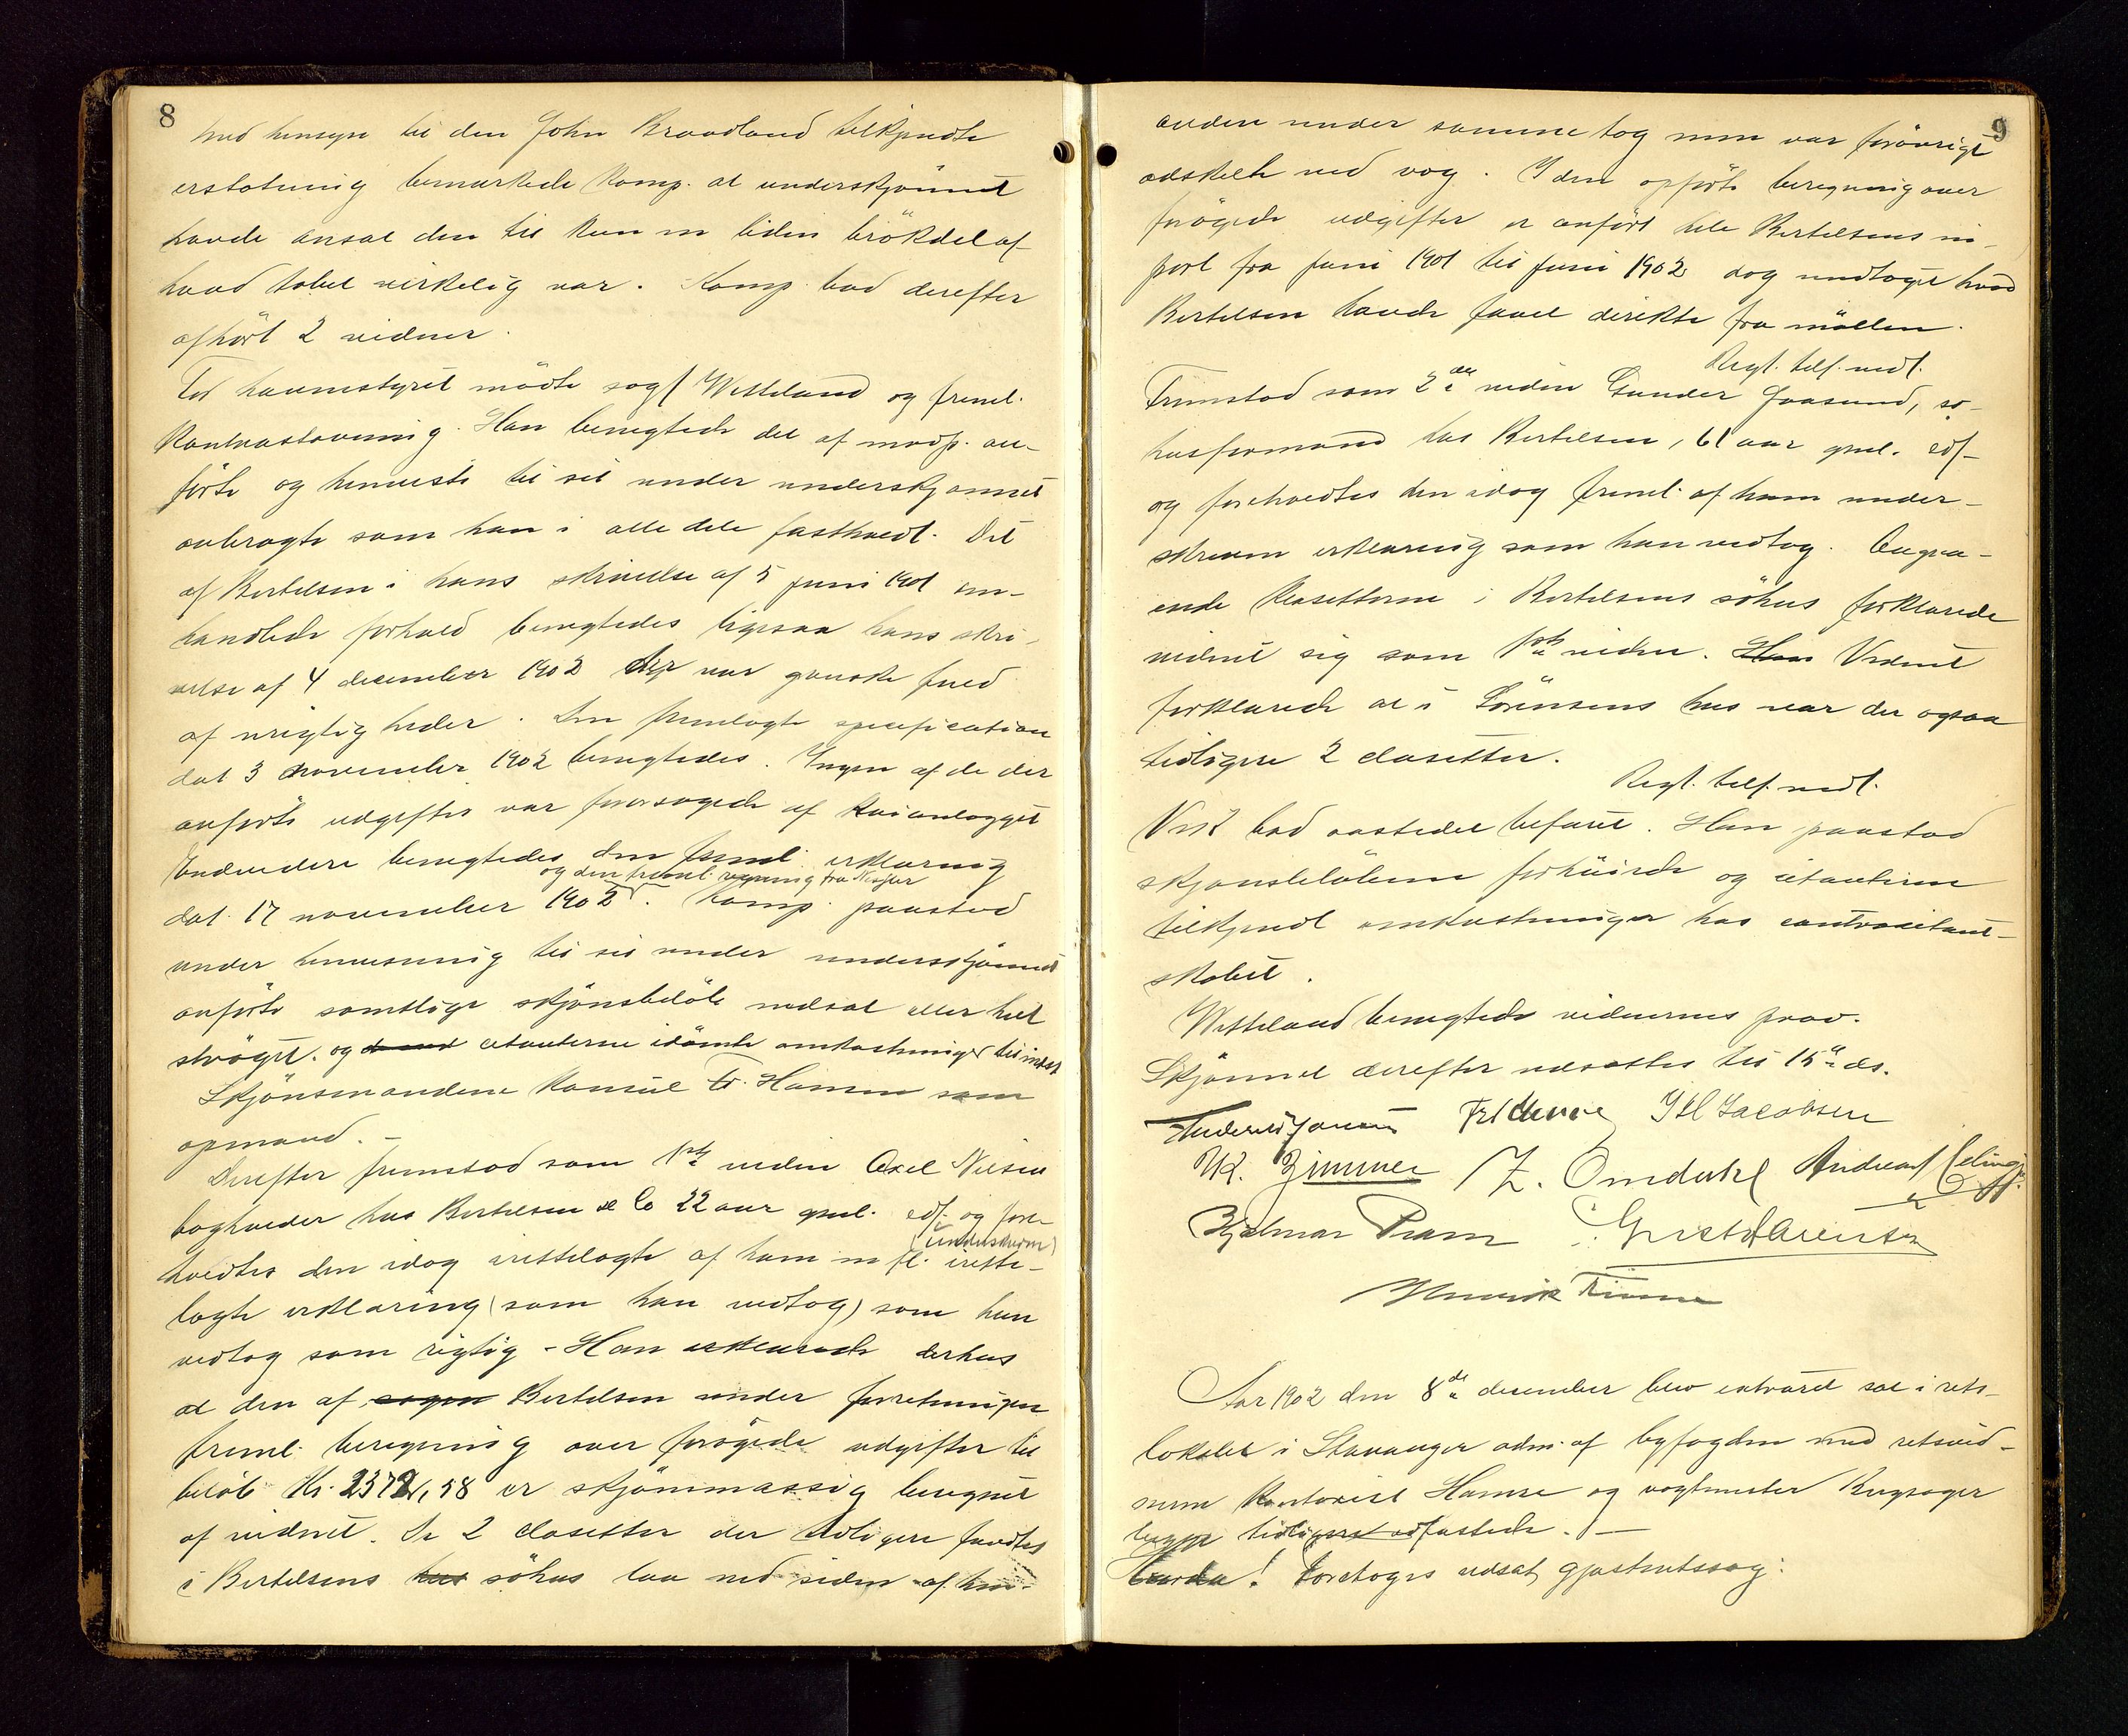 8
med hensyn til den John Braadland tilkjendte
erstatning bemærkede komp. at underskjønnet
havde ansat den til kun en liden brökdel af
hvad tabet virkelig var. Komp. bad derefter
afhört 2 vidner.
For havnestyret mødte sagf Wetteland og freml.
Kontrastævning. Han benegtede det af modp. an-
förte og henviste til sit under underskjønnet
anbragte som han i alle dele fastholdt. Det
af Bertelsen i hans skrivelse af 5 juni 1901 om-
handlede forhold benegtedes ligesaa hans skri-
velse af 4 december 1902 der var ganske fuld
af urigtigheder. Den fremlagte specification
dat 3 november 1902 benegtedes. Ingen af de der
anförte udgifter var foraarsagede af kaianlægget
Endvidere benegtedes den freml. erklæring
og den freml. regning fra
dat. 17 november 1902. Komp. paastod
under henvisning til sit under underskjønnet
anförte samtlige skjönsbelöb nedsat eller helt
ströget. og citanterne idömte omkostninger til
Skjönsmændene Konsul Fr. Hansen som
opmand. -
Derefter fremstod som 1ste vidne Axel Nilsen
bogholder hos Bertelsen & Co 22 aar gml. edf. og fore-
(underskrevne)
holdtes den idag irettelagte af ham m fl. irette-
lagte erklæring (som han vedtog) som han
vedtog som rigtig - Han erklærede derhos
at den af sagen Bertelsen under forretningen
freml. beregning over forögede udgifter til
belöb Kr. 2372,58 er skjönmæssig beregnet
af vidnet. De 2 closetter der tidligere fandtes
i Bertelsens hus söhus laa ved siden af hin-
9
anden under samme tag men var forövrigt
adskilt ved væg. I den opförte beregning over
forögede udgifter er anfört hele Bertelsens im-
port fra juni 1901 til juni 1902 dog undtaget hvad
Bertelsen havde faaet direkte fra möllen.
Regl. telf. vedt.
Fremstod som 2det vidne Gunder Gaasund, sö-
husformand hos Bertelsen, 61 aar gml. edf-
og foreholdtes den idag freml. af ham under-
skrevne erklæring som han vedtog. Angaa-
ende klosetterne i Bertelsens söhus forklarede
vidnet sig som 1ste vidne. Han Vidnet
forklarede at i Sörensens hus var der ogsaa
tidligere 2 closetter.
Regl. telf. vedt.
Vik bad aastedet befaret. Han paastod
skjönsbelöbene forhöiede og citanterne
tilkjendt omkostninger hos contracitant-
skabet.
Wetteland benegtede vidnernes prov.
Skjønnet derefter udsattes til 15de ds.
K. Zimmer Z. Omdahl
Hjalmar Pram
Aar 1902 den 8de december blev extraret sat i rets-
lokalet i Stavanger adm. af byfogden med retsvid-
nerne kontorist Hansen og vagtmester
begge tidligere edfæstede. -
Foretoges udsat gjestretssag: